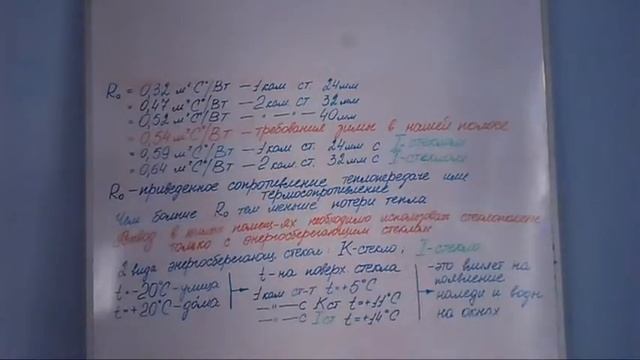 R₀ = 0,32 м²С°/Вт — 1 кам. ст. 24мм
= 0,47 м²С°/Вт — 2 кам. ст. 32мм
= 0,52 м²С°/Вт — " — " — 40мм
= 0,54 м²С°/Вт — требования зимы в нашей полосе
= 0,59 м²С°/Вт — 1 кам. ст. 24мм с I-стеклом
= 0,64 м²С°/Вт — 2 кам. ст. 32мм с I-стеклом
R₀ - приведенное сопротивление теплопередаче или
термосопротивление
Чем больше R₀ тем меньше потери тепла
Вывод в жилых помещ-ях необходимо использовать стеклопакеты
только с энергосберегающим стеклом
2 вида энергосберегающ. стекол: К-стекло, I-стекло
t = -20°С - улица
t = +20°С - дома
t - на поверх стекла
1 кам ст-т t = +5°С
— " — с К ст t = +11°С
— " — с I ст t = +14°С
- это влияет на
появление
наледи и воды
на окнах